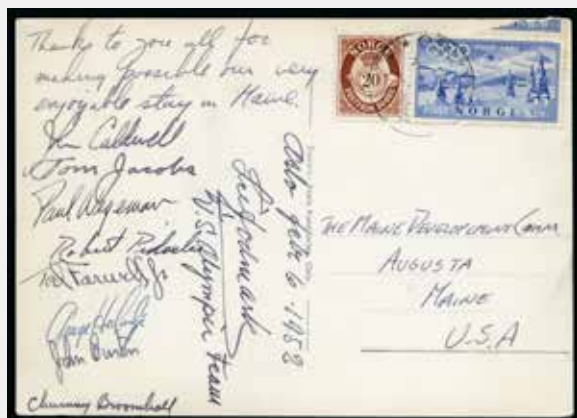 Thanks to you all for
making possible our very
enjoyable stay in Maine.
John Caldwell
Tom Jacobs
Paul Wegeman
Robert Pidacks
Ted Farwell Jr
John Burton
Chummy Broomhall
Oslo Feb 6 1952
U.S. Olympic Team
NORGE
20
NORGE
THE MAINE DEVELOPMENT Comm
AUGUSTA
MAINE
U.S.A